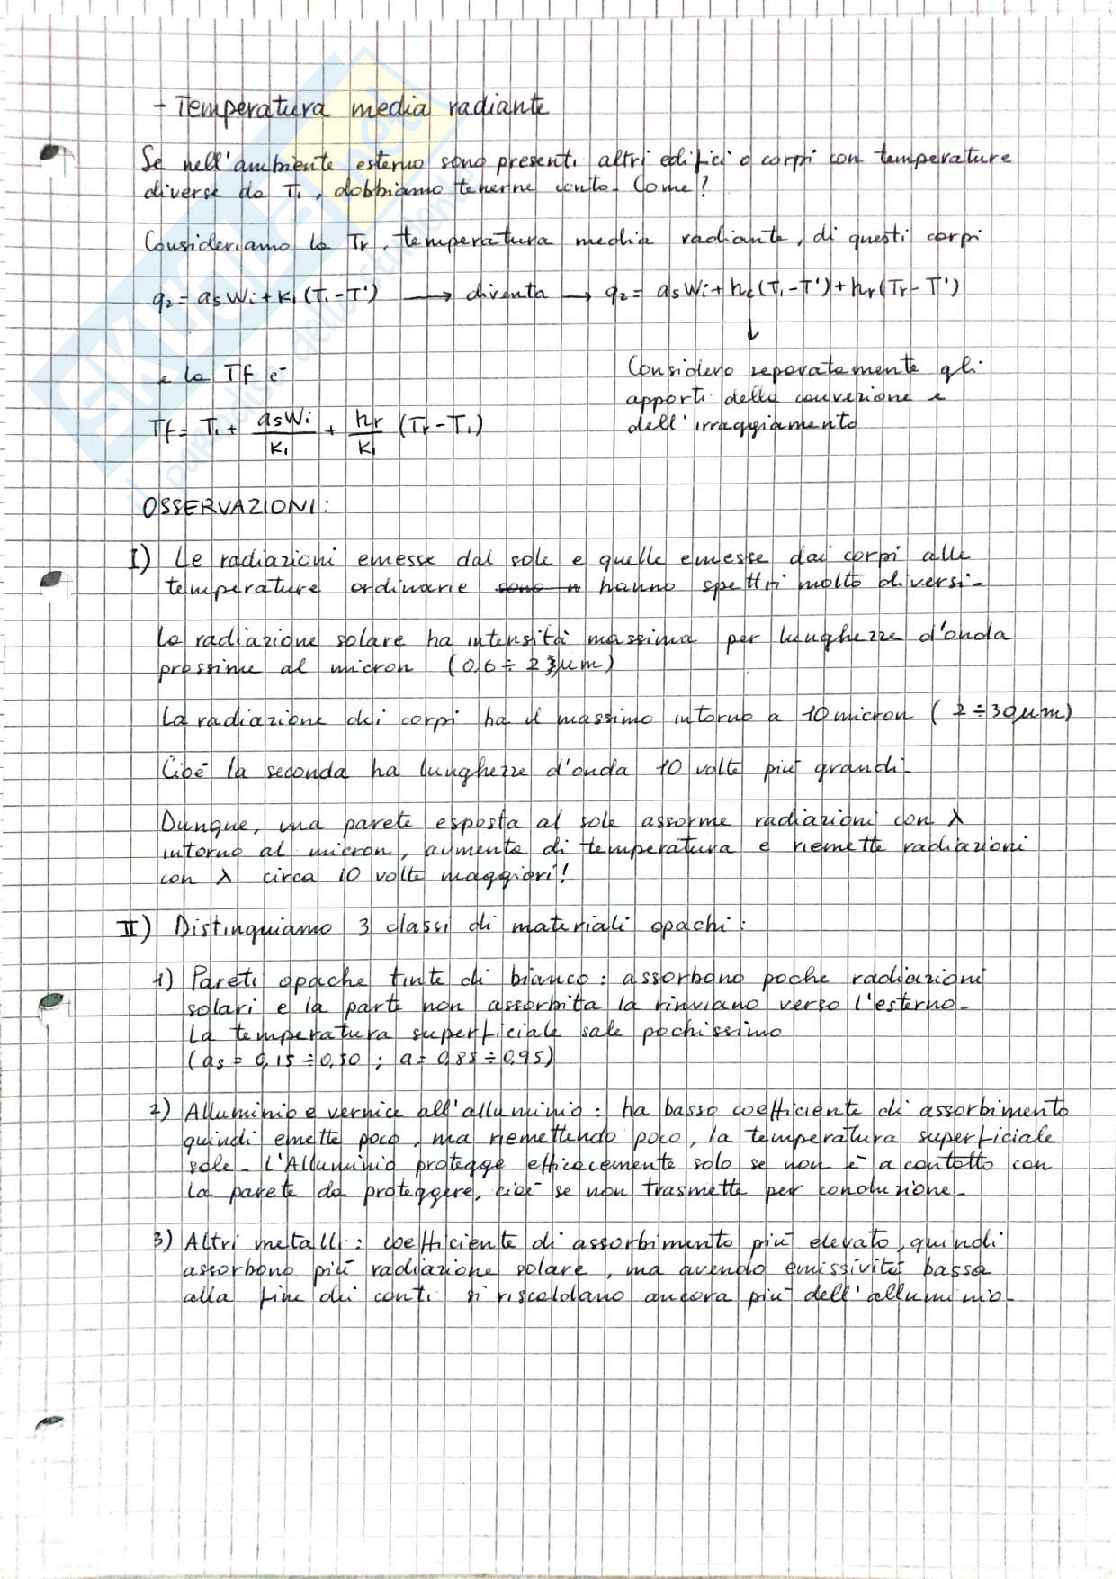 - Temperatura media radiante
Se nell'ambiente esterno sono presenti altri edifici o corpi con temperature
diverse da T₁, dobbiamo tenerne conto. Come?
Consideriamo la Tr, temperatura media radiante, di questi corpi
q₂ = asWi + K₁(T₁ - T') → diventa → q₂ = asWi + hc(T₁ - T') + hr(Tr - T')
↓
e la Tf è
Considero separatamente gli
apporti della convezione e
dell'irraggiamento
Tf = T₁ + asWi/K₁ + hr/K₁ (Tr - T₁)
OSSERVAZIONI:
I) Le radiazioni emesse dal sole e quelle emesse dai corpi alle
temperature ordinarie hanno spettri molto diversi.
La radiazione solare ha intensità massima per lunghezze d'onda
prossime al micron (0,6 ÷ 2 μm)
La radiazione dei corpi ha il massimo intorno a 10 micron (2 ÷ 30 μm)
Cioè la seconda ha lunghezze d'onda 10 volte più grandi.
Dunque, una parete esposta al sole assorme radiazioni con λ
intorno al micron, aumenta di temperatura e riemette radiazioni
con λ circa 10 volte maggiori!
II) Distinguiamo 3 classi di materiali opachi:
1) Pareti opache tinte di bianco: assorbono poche radiazioni
solari e la parte non assorbita la rinviano verso l'esterno.
La temperatura superficiale sale pochissimo
(as = 0,15 ÷ 0,30 ; a = 0,85 ÷ 0,95)
2) Alluminio e vernice all'alluminio: ha basso coefficiente di assorbimento
quindi emette poco, ma riemettendo poco, la temperatura superficiale
sale. L'Alluminio protegge efficacemente solo se non è a contatto con
la parete da proteggere, cioè se non trasmette per conduzione.
3) Altri metalli: coefficiente di assorbimento più elevato, quindi
assorbono più radiazione solare, ma avendo emissività bassa
alla fine dei conti si riscaldano ancora più dell'alluminio.